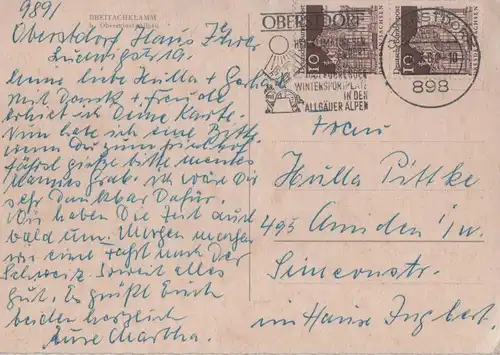 989/
BREITACHKLAMM
b. Oberstdorf/Allgäu
Oberstdorf Haus
Ludwigstr 19.
Meine liebe Hulla +
Mit Dank + Freude
erhielt ich Deine Karte.
Nun hätte ich eine Bitte
wenn Du zum Friedhof
fährst gieße bitte meines
Mannes Grab. ich wäre Dir
sehr dankbar dafür.
Wir haben die Zeit auch
bald um. Morgen machen
wir eine Fahrt nach der
Schweiz. Soweit alles
gut. Es grüßt Euch
beiden herzlich
Eure Martha.
OBERSTDORF
WINTERSPORTPLATZ
IN DEN
ALLGÄUER ALPEN
10
10
898
Frau
Hulla Pittke
495 Minden i/w.
Simeonstr.
im Hause